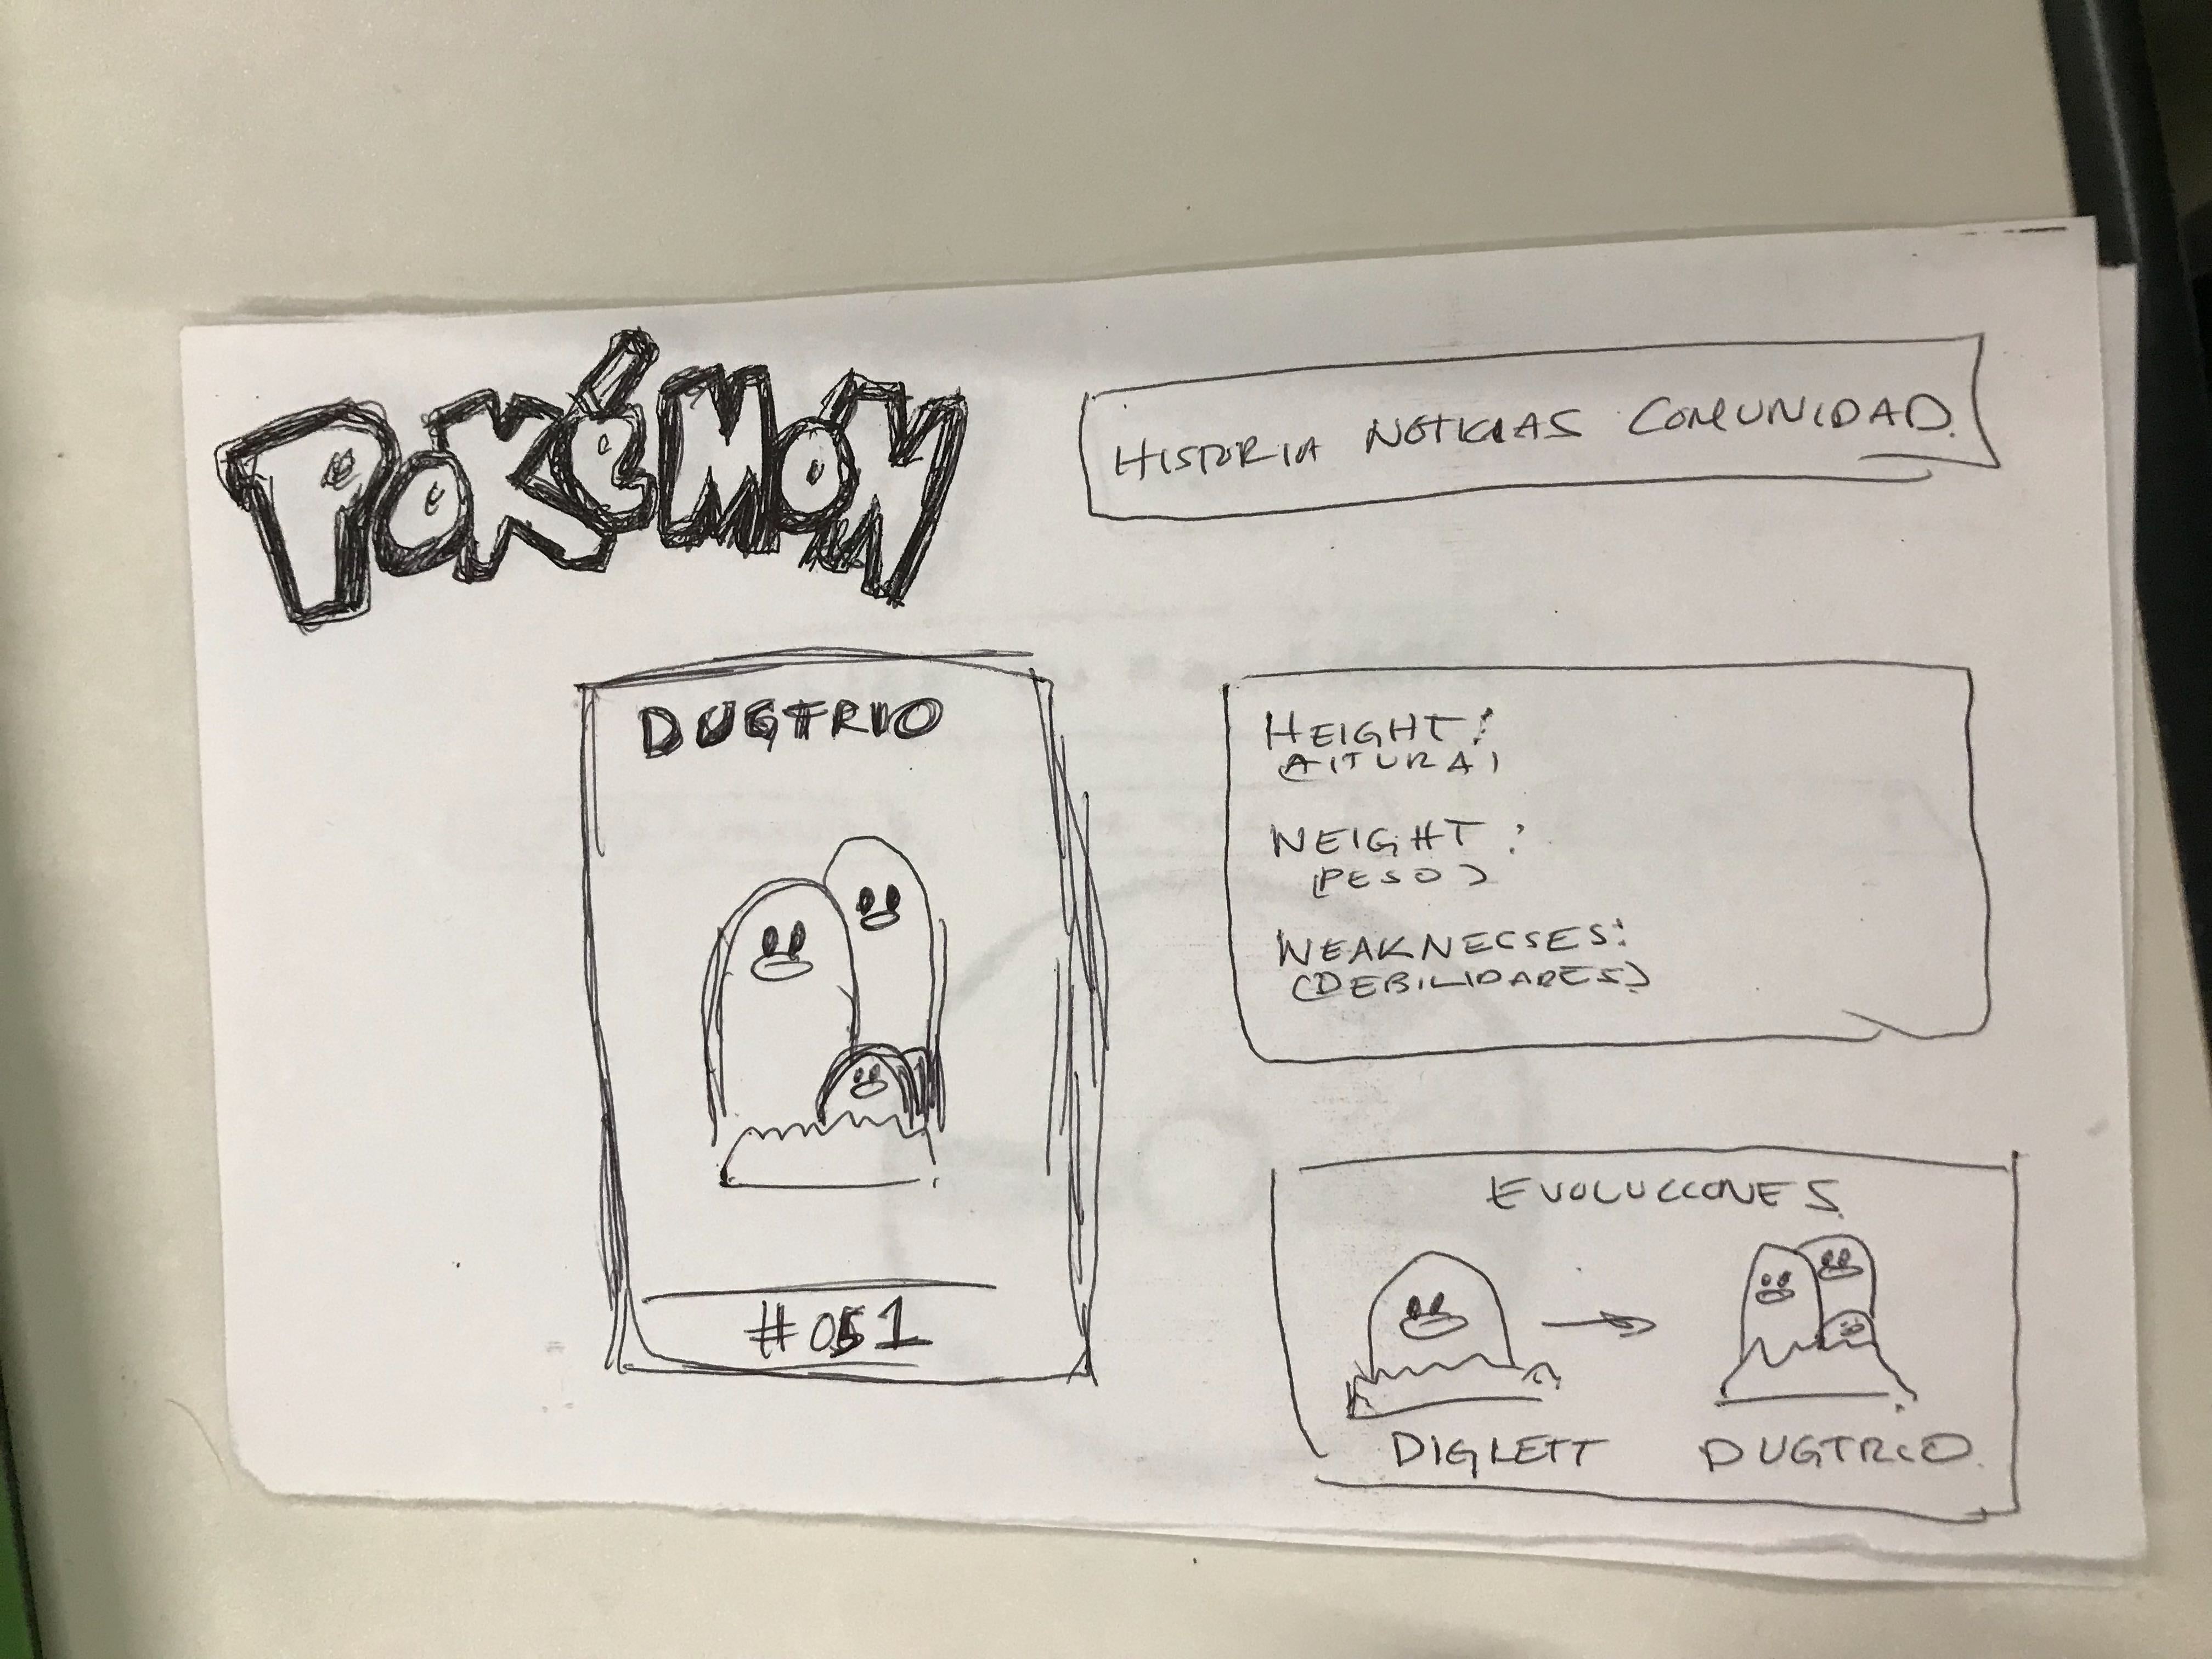 POKÉMON
HISTORIA NOTICIAS COMUNIDAD.
DUGTRIO
#051
HEIGHT:
(ALTURA)
WEIGHT:
(PESO)
WEAKNESSES:
(DEBILIDADES)
EVOLUCIONES
DIGLETT
DUGTRIO